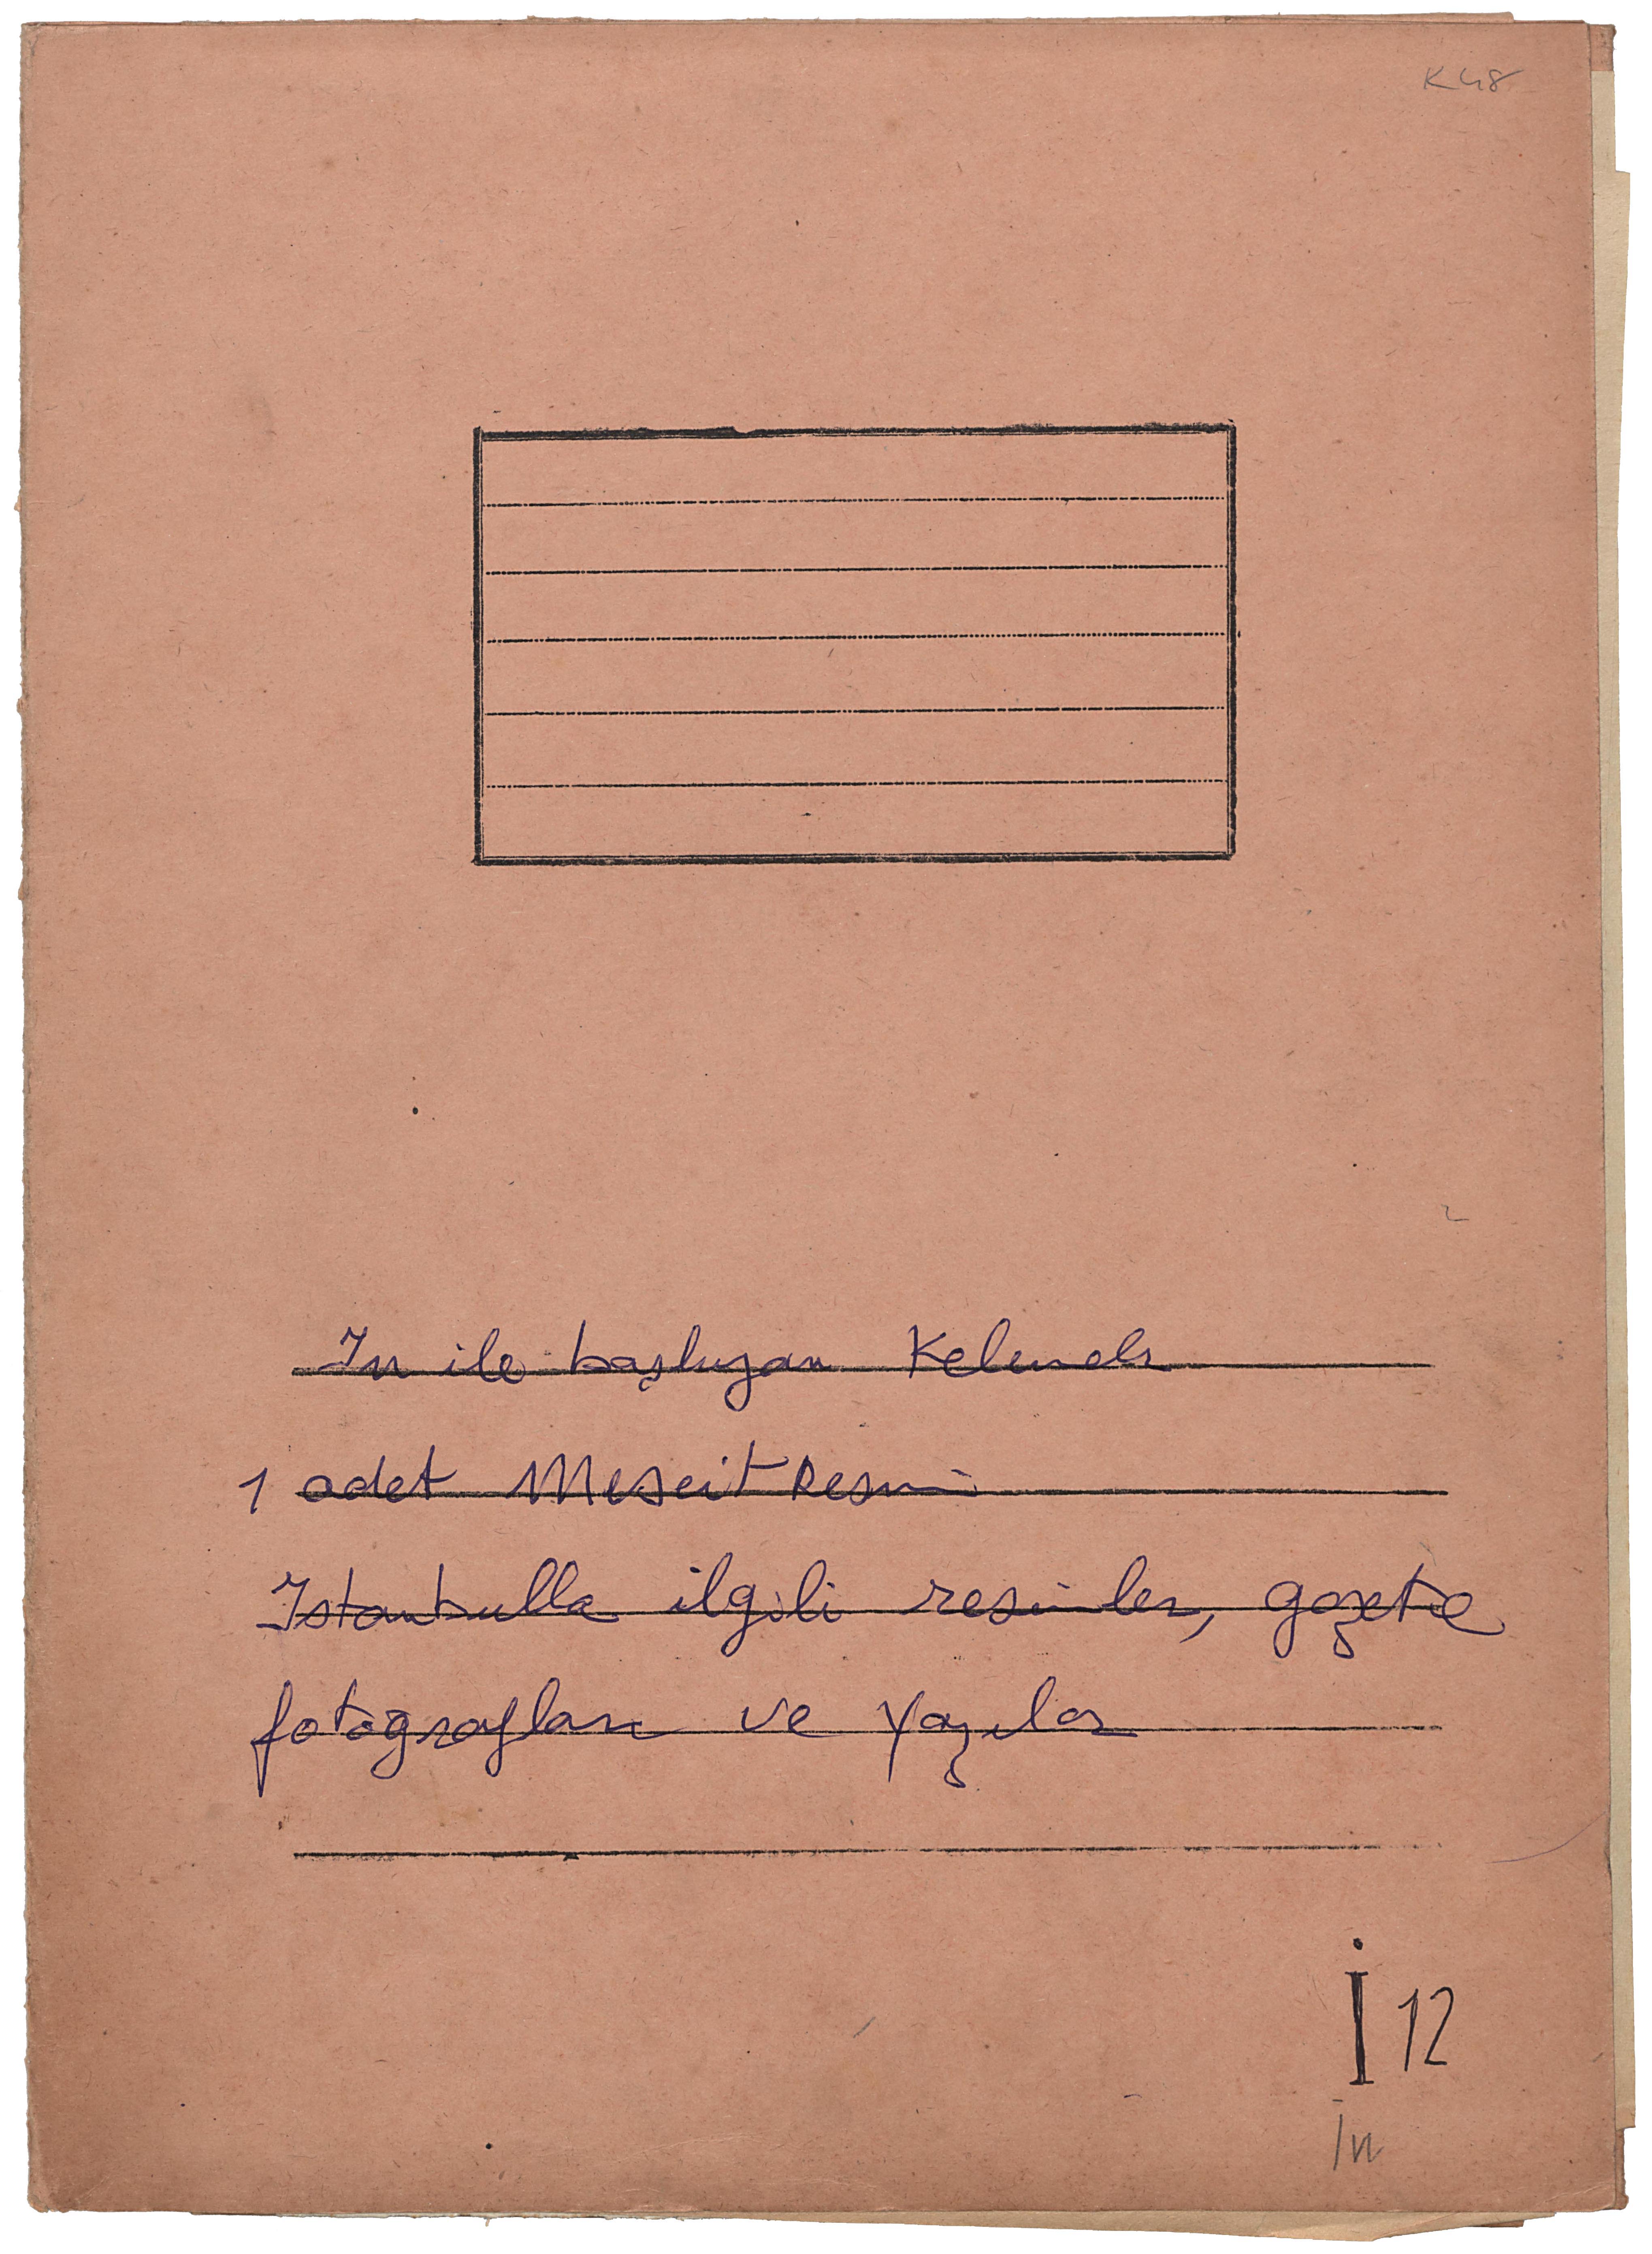 K48
In ile başlayan Kelimeler
1 adet Mescit Resmi
Istanbulla ilgili resimler, gazete
fotoğrafları ve yazılar
İ 12
İn